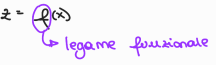 z = f(x)
↳ legame funzionale